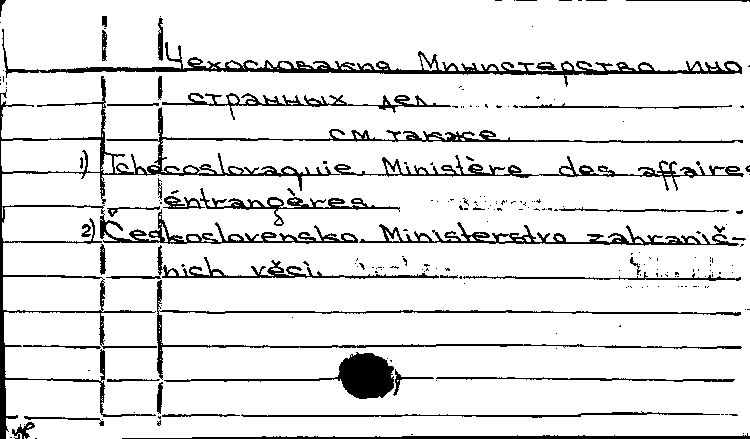 Чехословакия. Министерство ино-
странных дел.
см. также.
1) Tchécoslovaquie. Ministère des affaires
éntrangères.
2) Československo. Ministerstvo zahranič-
nich věci.